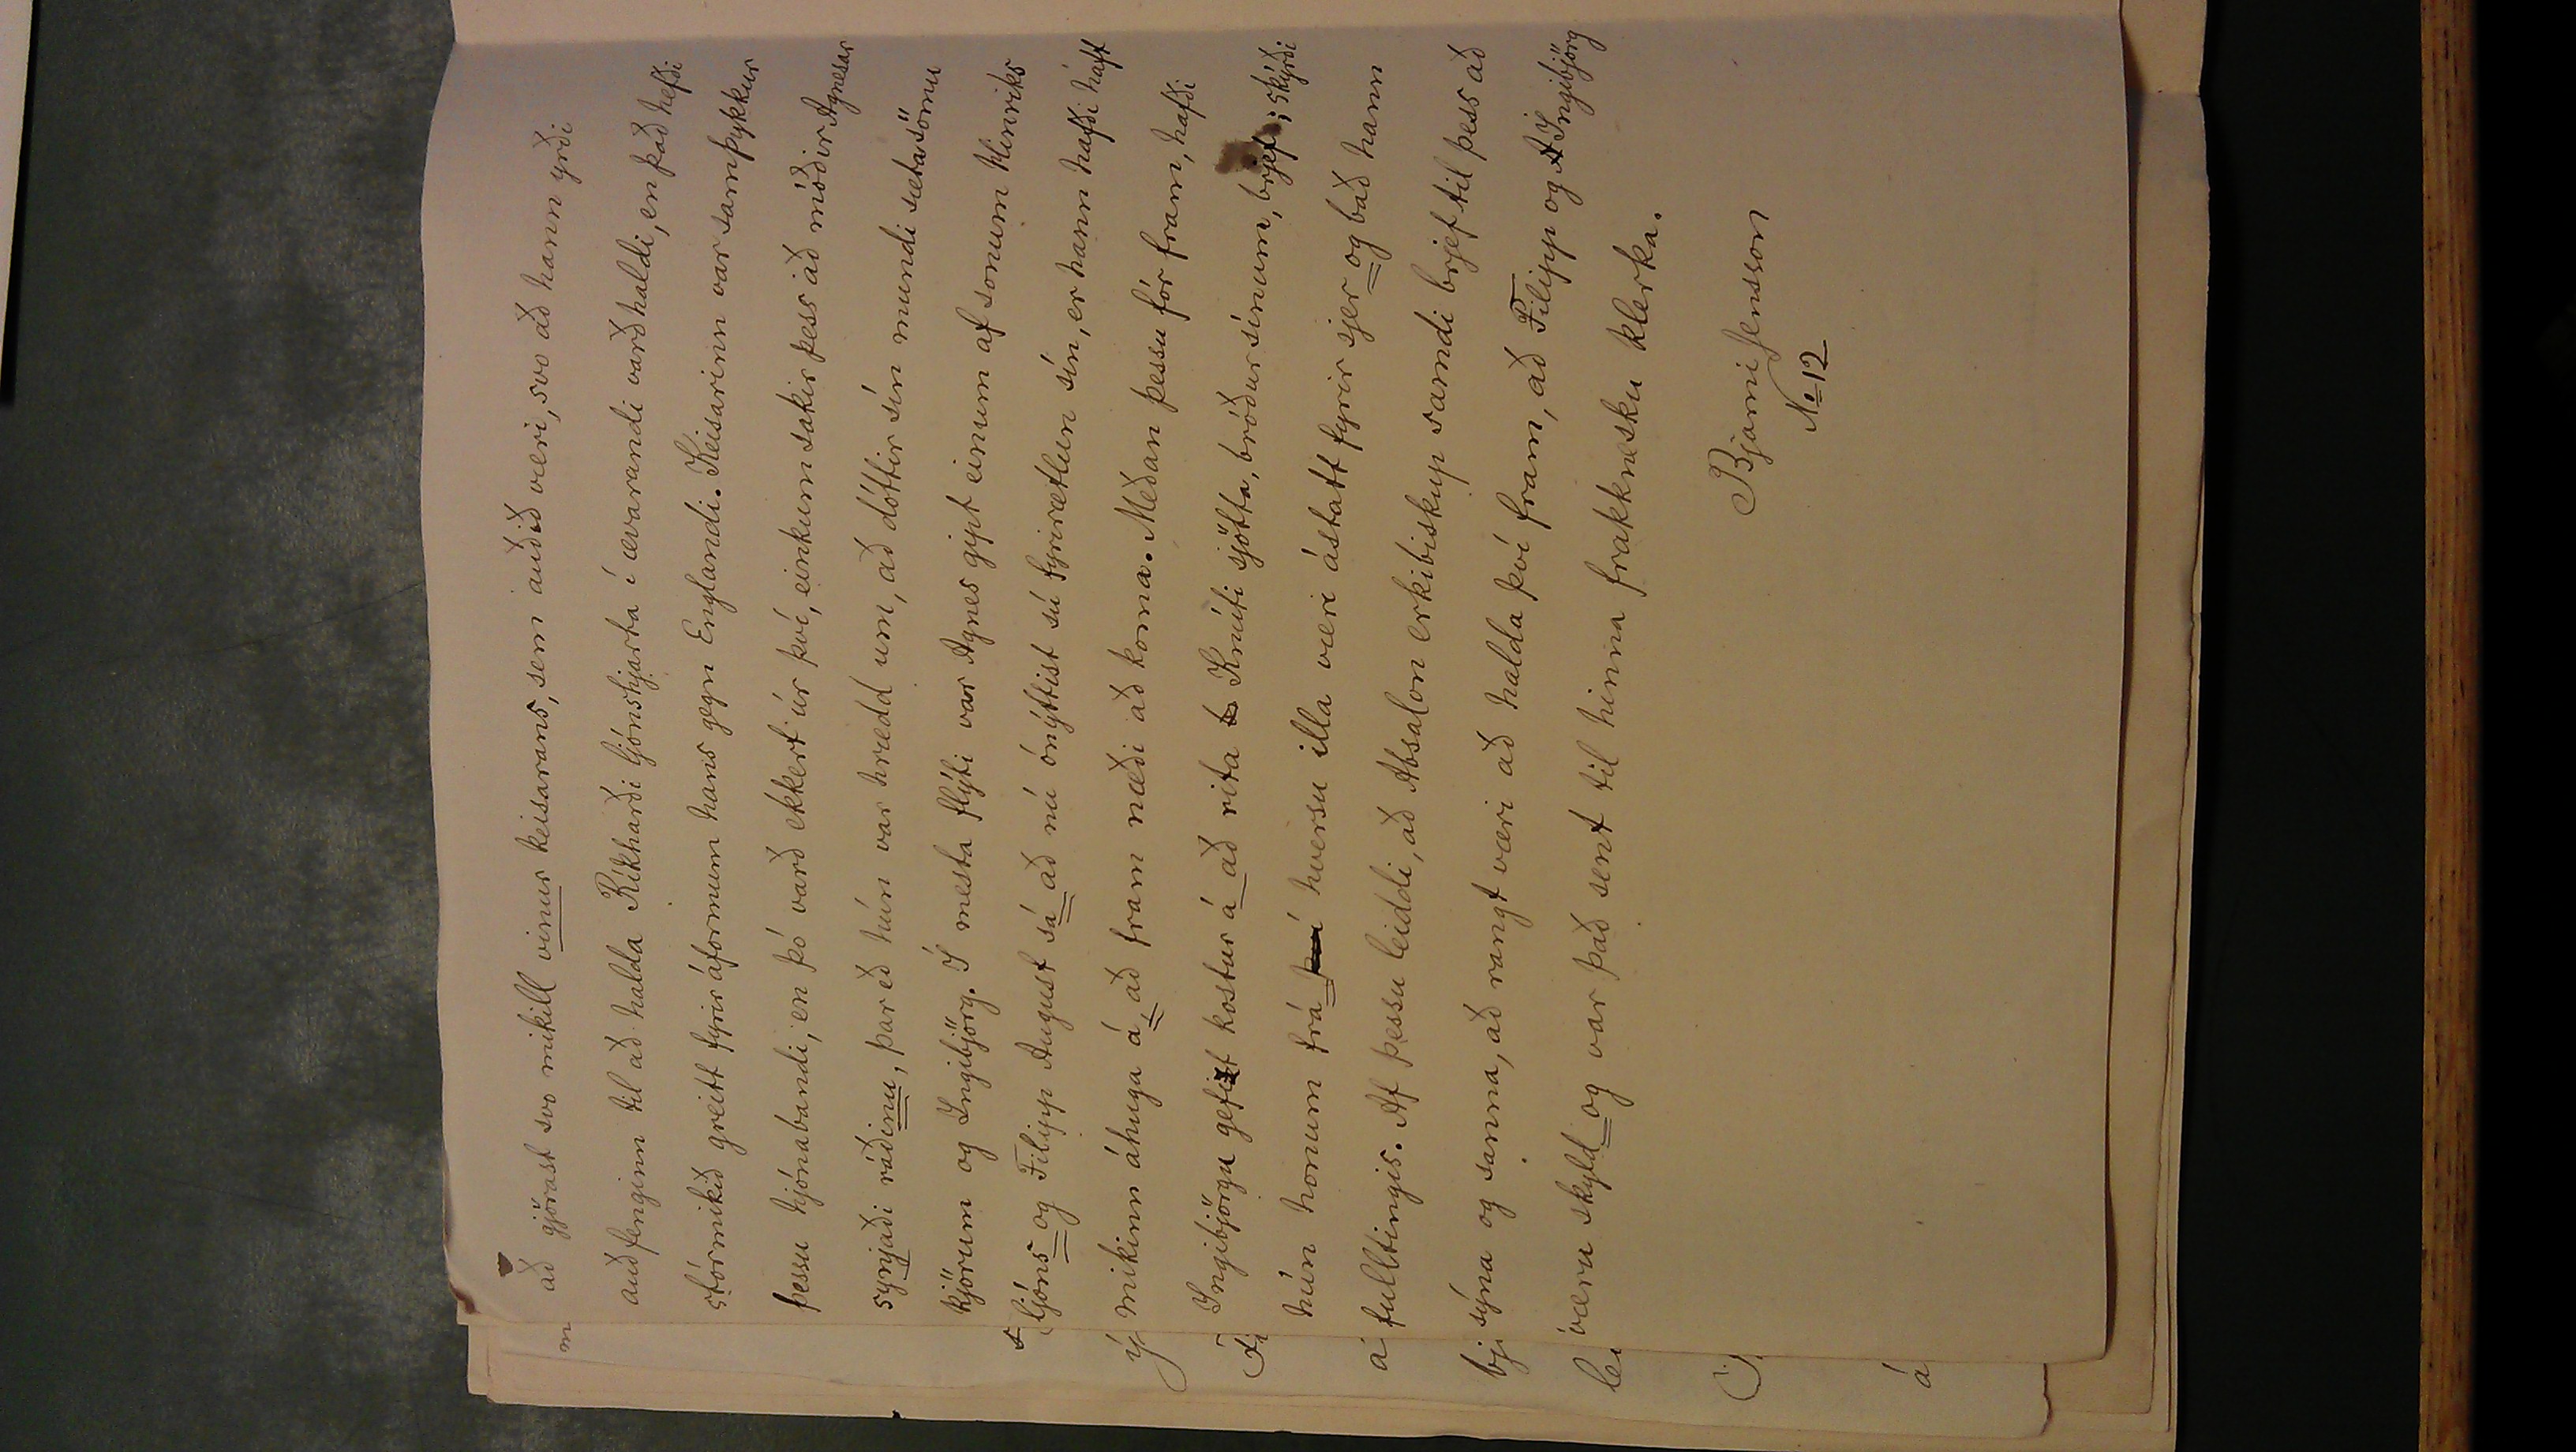 að gjörast svo mikill vinur keisarans, sem auðið væri, svo að hann yrði
auðfenginn til að halda Rikharði ljónshjarta í ævarandi varðhaldi, en það hefði
stórmikið greitt fyrir áformum hans gegn Englandi. Keisarinn var samþykkur
þessu hjónabandi, en þó varð ekkert úr því, einkum sakir þess að móðir Agnesar
synjaði ráðinu, þar eð hún var hrædd um, að dóttir sín mundi sæta sömu
kjörum og Ingibjörg. Í mesta flýti var Agnes gipt einum af sonum Hinriks
ljóns og Filipp August sá að nú ónýttist sú fyrirætlun sín, er hann hafði haft
mikinn áhuga á, að fram næði að koma. Meðan þessu fór fram, hafði
Ingibjörgu gefizt kostur á að rita Knúti sjötta, bróður sínum, brjef; skýrði
hún honum frá því hversu illa væri ástatt fyrir sjer og bað hann
fulltingis. Af þessu leiddi, að Absalon erkibiskup samdi brjef til þess að
sýna og sanna, að rangt væri að halda því fram, að Filipp og Ingibjörg
væru skyld og var það sent til hinna frakknesku klerka.
Bjarni Jensson
No 12